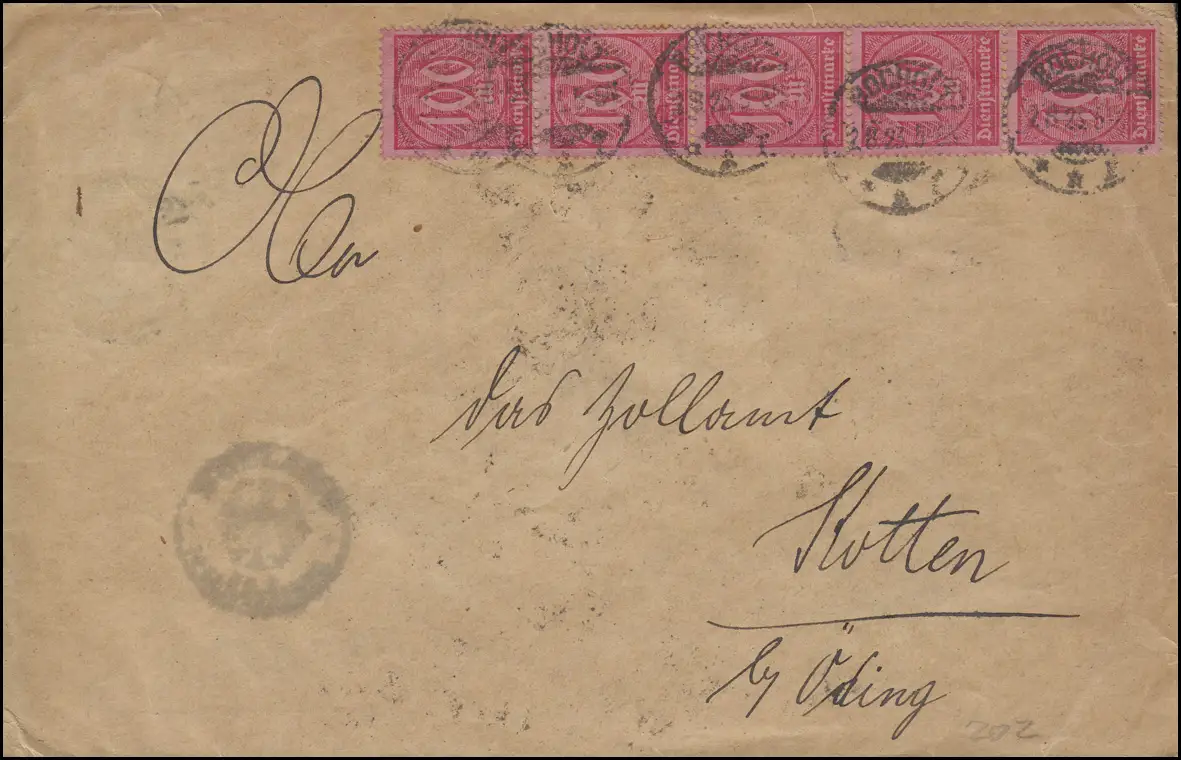 100 M Dienstmarke 100 M Dienstmarke 100 M Dienstmarke 100 M Dienstmarke 100 Dienstmarke
BOCHOLT
2.8.23.6-
An
das Zollamt
Kotten
by Öding
202